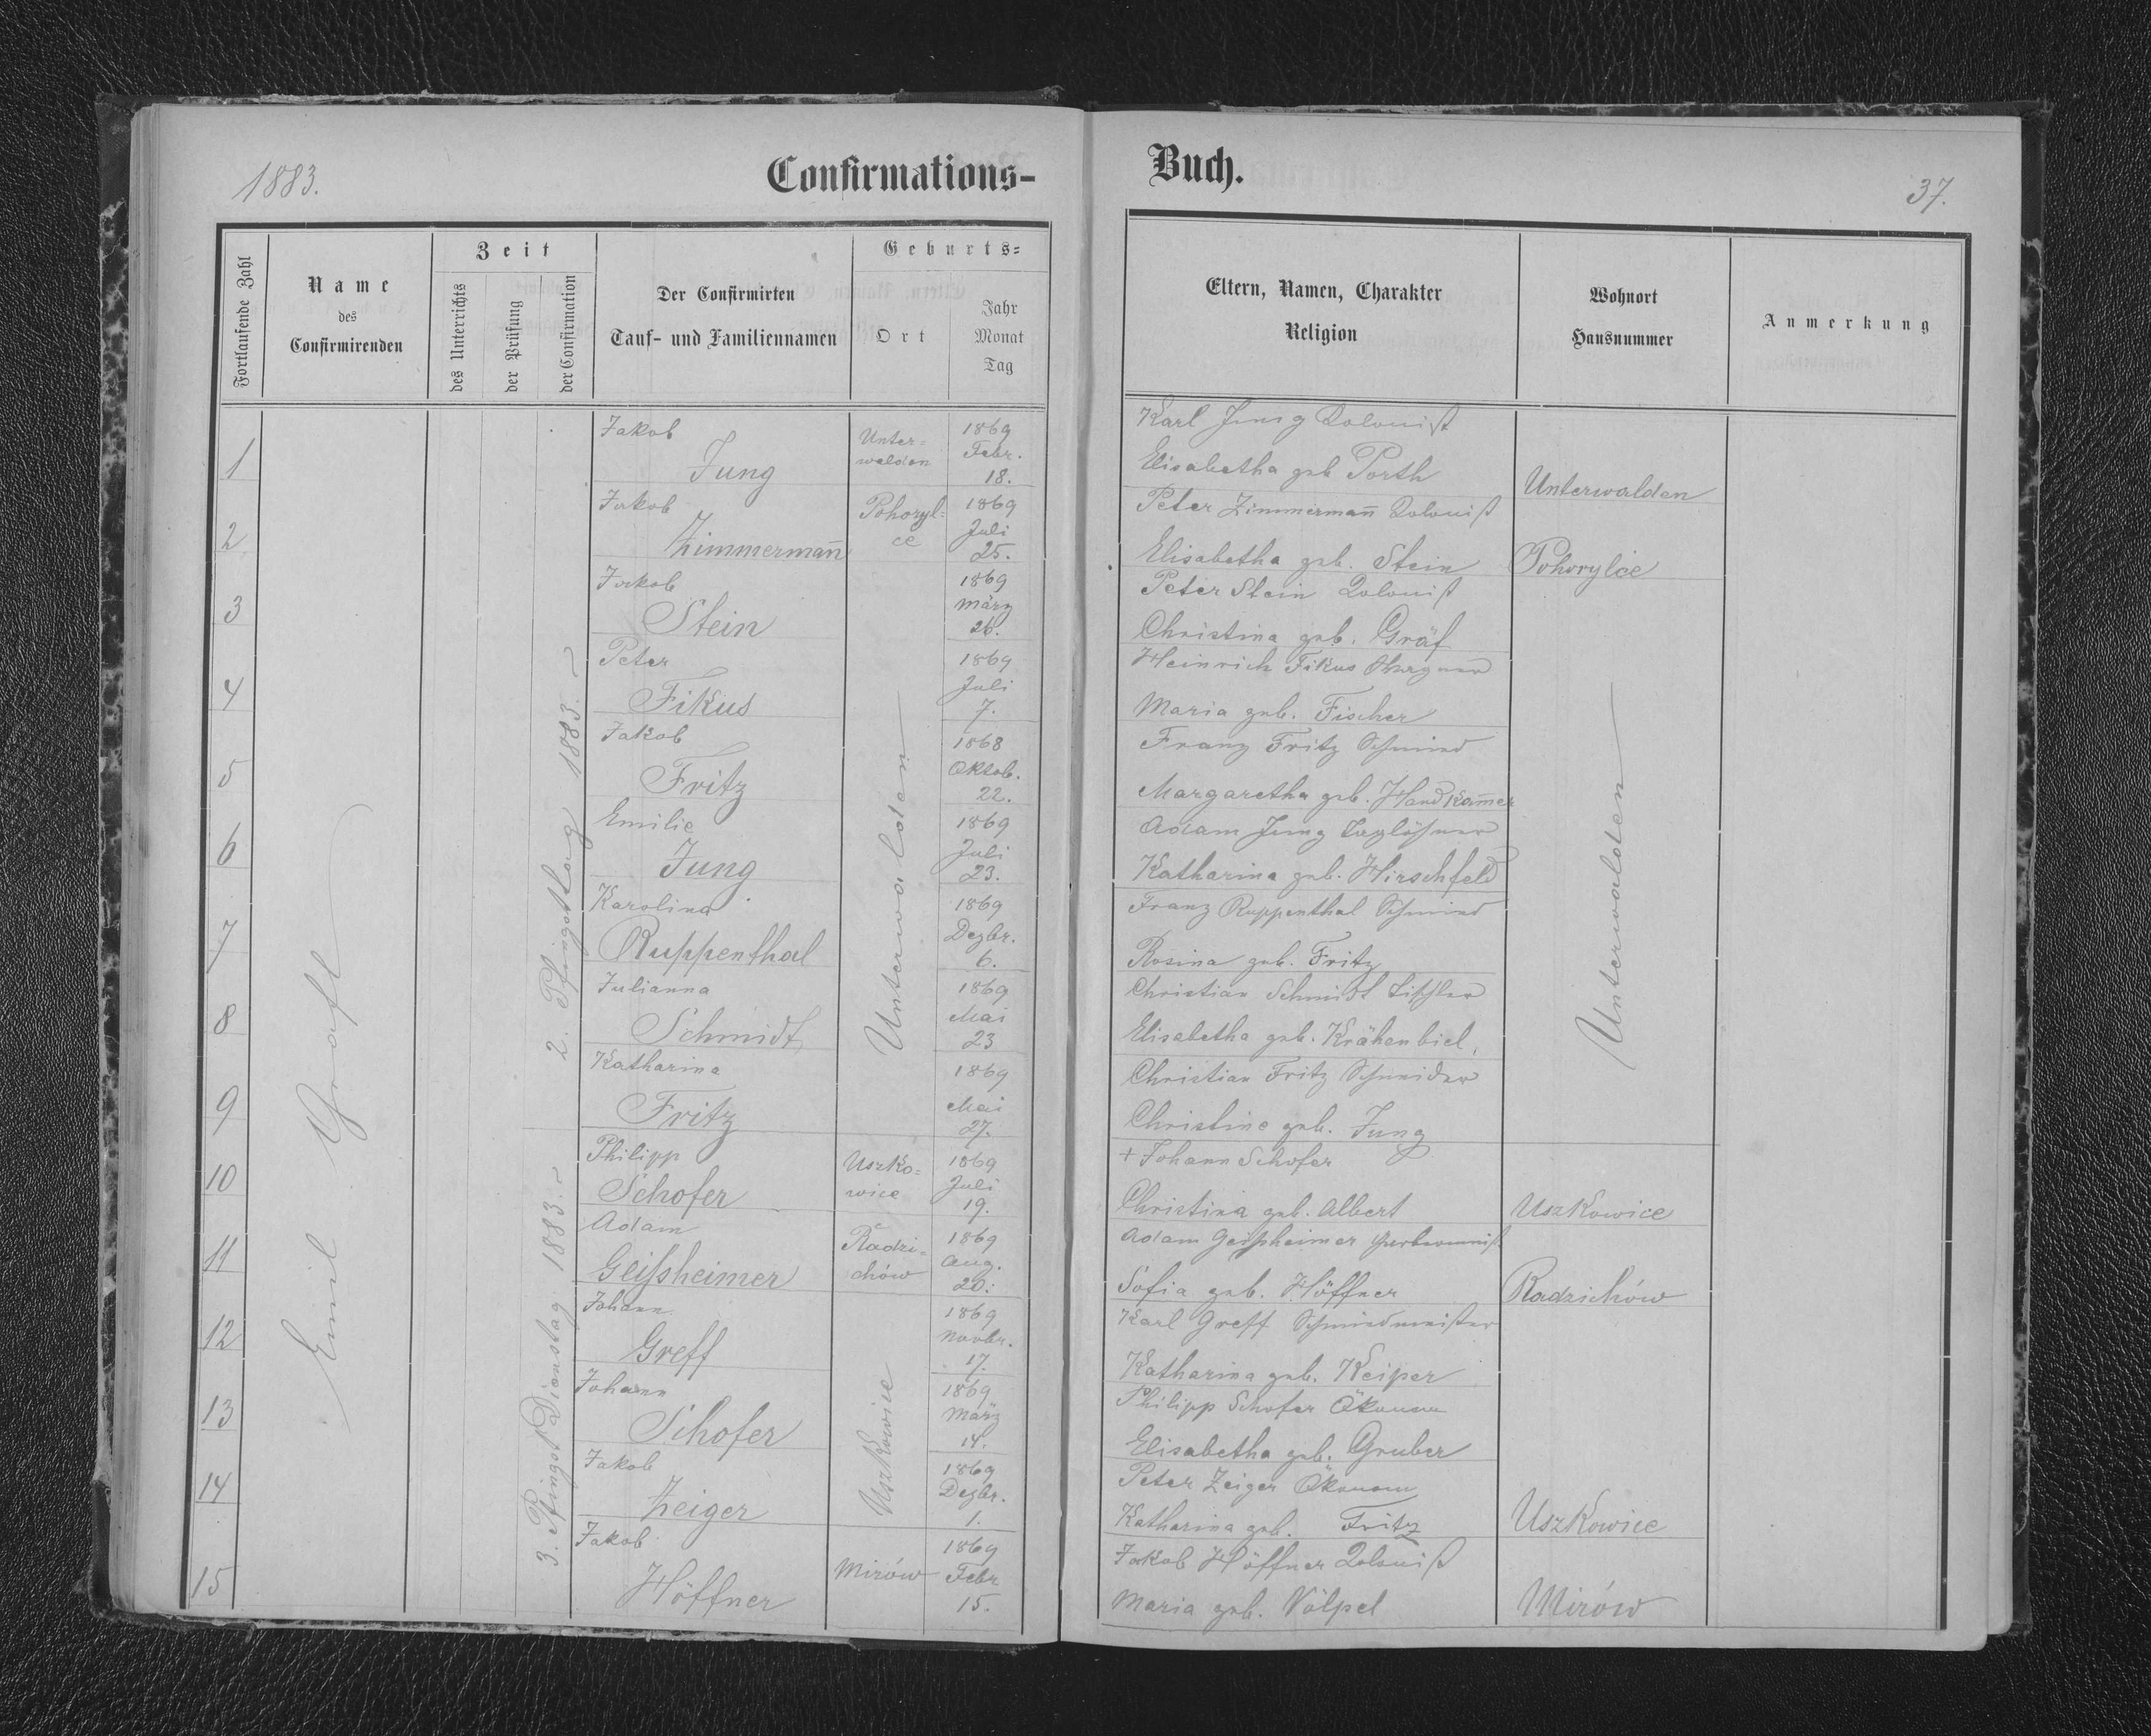 1883.
Confirmations-
Buch.
37.
Fortlaufende Zahl
Name
des
Confirmirenden
Zeit
des Unterrichts
der Prüfung
der Confirmation
Der Confirmirten
Tauf- und Familiennamen
Geburts-
Ort
Jahr
Monat
Tag
Eltern, Namen, Charakter
Religion
Wohnort
Hausnummer
Anmerkung
Emil
2. Pfingsttag 1883.
Unterwalden
Unterwalden
1
Jakob
Jung
Unter=
walden
1869
Febr.
18.
Karl Jung Kolonist
Elisabetha geb Porth
Unterwalden
2
Jakob
Zimmermañ
Pohoryl=
ce
1869
Juli
25.
Peter Zimmermañ Kolonist
Elisabetha geb. Stein
Pohorylce
3
Jakob
Stein
1869
März
26.
Peter Stein Kolonist
Christina geb. Gräf
4
Peter
Fikus
1869
Juli
7.
Heinrich Fikus Wagner
Maria geb. Fischer
5
Jakob
Fritz
1868
Oktob.
22.
Franz Fritz Schmied
Margaretha geb. Handkam̄er
6
Emilie
Jung
1869
Juli
23.
Adam Jung Taglöhner
Katharina geb. Hirschfeld
7
Karolina
Ruppenthal
1869
Dezbr.
6.
Franz Ruppenthal Schmied
Rosina geb. Fritz
8
Julianna
Schmidt
1869
Mai
23
Christian Schmidt Tischler
Elisabetha geb. Krähenbiel,
9
Katharina
Fritz
1869
Mai
27.
Christian Fritz Schneider
Christine geb. Jung
3. Pfingst Dienstag 1883.
10
Philipp
Schofer
Uszko=
wice
1869
Juli
19.
+ Johann Schofer
Christina geb. Albert
Uszkowice
11
Adam
Geißheimer
Radzi=
chów
1869
Aug.
20.
Adam Geißheimer
Sofia geb. Höffner
Radzichów
12
Johann
Greff
Uszkowice
1869
Novbr.
17.
Karl Greff Schmiedmeister
Katharina geb. Keiper
13
Johann
Schofer
1869
März
14.
Philipp Schofer Ökonom
Elisabetha geb. Gruber
14
Jakob
Zeiger
1869
Dezbr.
1.
Peter Zeiger Ökonom
Katharina geb. Fritz
Uszkowice
15
Jakob
Höffner
Mirów
1869
Febr
15.
Jakob Höffner Kolonist
Maria geb. Völpel
Mirów